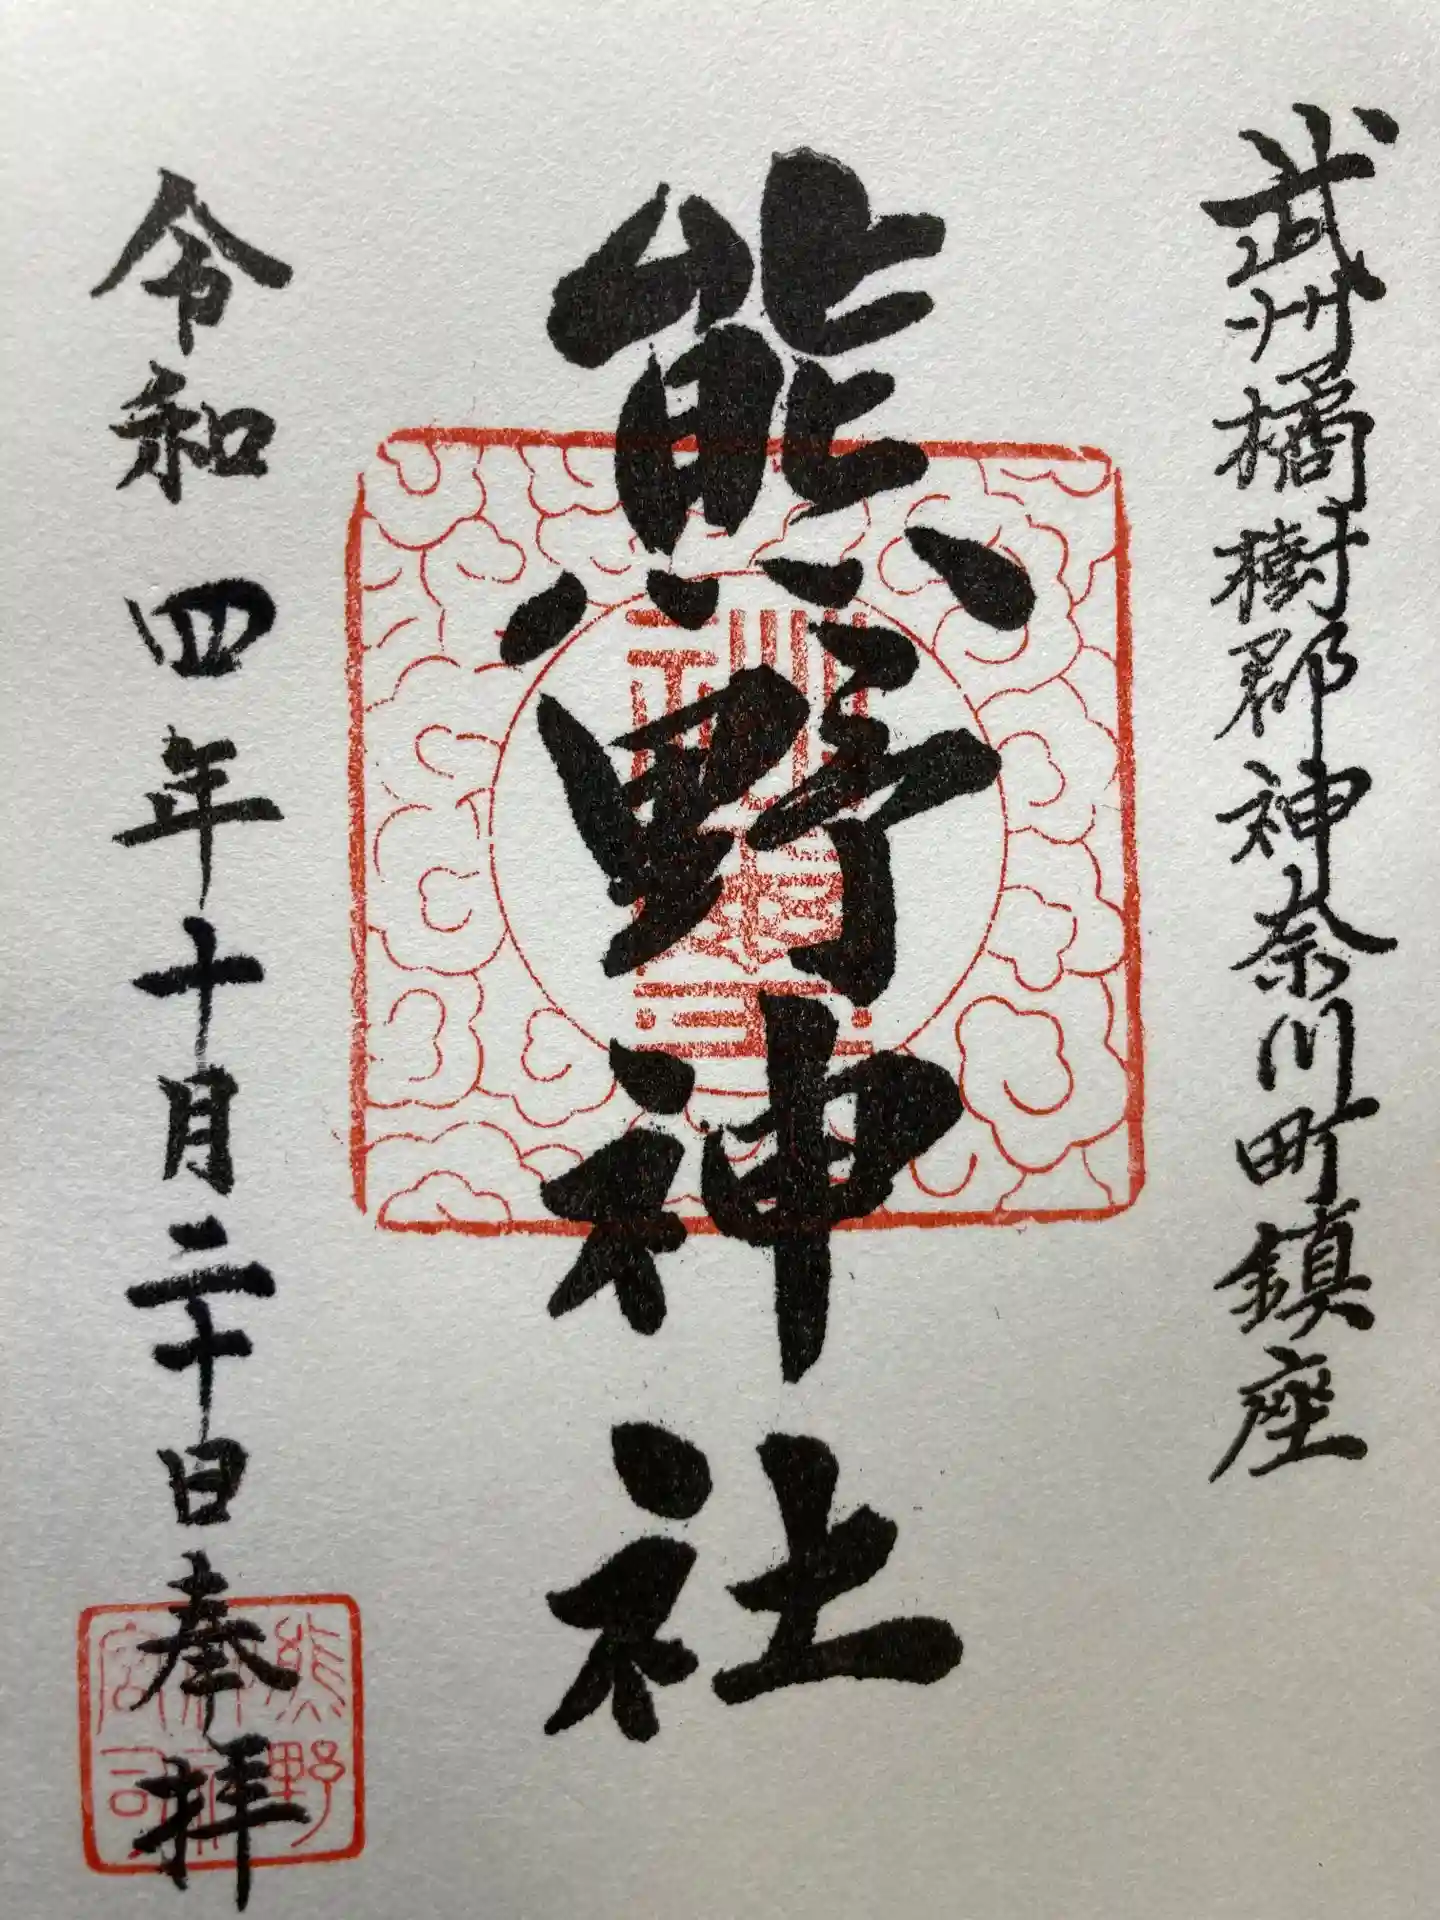 武州橘樹郡神奈川町鎮座
熊野神社
令和四年十月二十日奉拝
熊野
神社
宮司